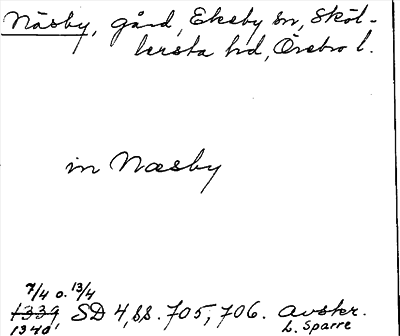 Näsby, gård, Ekeby sn, Sköl-
lersta hd, Örebro l.
in Næsby
7/4 o. 13/4
1339 SD 4, ss. 705, 706. avskr.
1340, L. Sparre